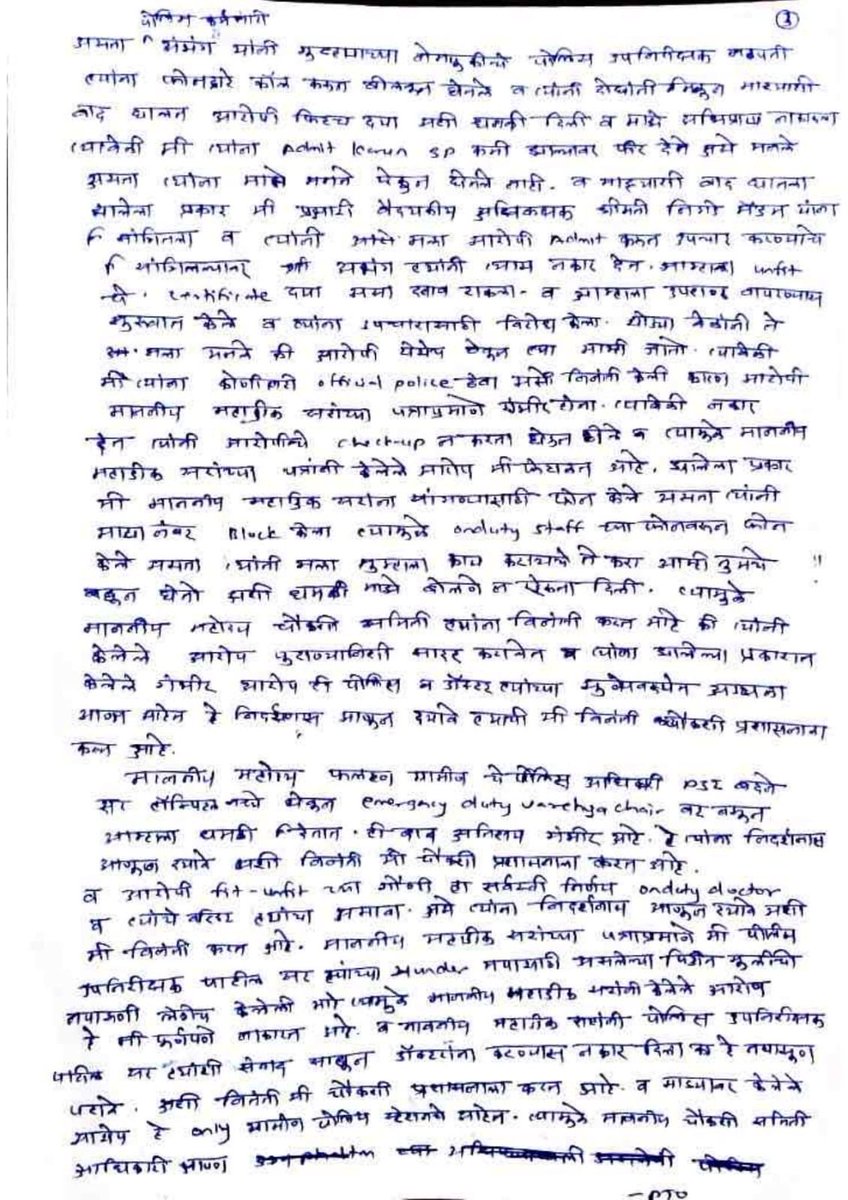 पोलिस कर्मचारी
③
असता अभंग यांनी मुख्यालयाच्या पोलिस उपनिरीक्षक बदने
त्यांना फोनद्वारे कॉल करून बोलवून घेतले व त्यांनी दोघांनी मिळून माझ्याशी
वाद घालून आरोपी फिटच द्या अशी धमकी दिली व माझे अभिप्राय नाकारला
त्यावेळी मी त्यांना Admit करून BP कमी झाल्यावर फीट देते असे म्हणले
असता त्यांनी माझे म्हणणे ऐकून घेतले नाही. व माझ्याशी वाद घातला
झालेला प्रकार मी प्रभारी वैद्यकीय अधिक्षक श्रीमती मॅडम यांना
सांगितला व त्यांनी असे मला आरोपी Admit करून उपचार करण्याचे
सांगितल्यानंतर श्री अभंग त्यांनी त्यास नकार देत. आम्हाला unfit
चे certificate द्या असा दबाव टाकला. व आम्हाला अपशब्द वापरण्यास
सुरुवात केले व त्यांना उपचारासाठी विरोध केला. थोड्या वेळानी ते
मला म्हणले की आरोपी येथेच ठेवून आम्ही जातो. त्यावेळी
मी त्यांना कोणीतरी official police ठेवा अशी विनंती केली कारण आरोपी
माननीय महाडीक सरांच्या पत्राप्रमाणे गंभीर होता. त्यावेळी नकार
देत त्यांनी आरोपीचे check-up न करता घेऊन गेले व त्यामुळे माननीय
महाडीक सरांच्या पत्रांनी केलेले आरोप मी फेटाळत आहे. झालेला प्रकार
मी माननीय महाडिक सरांना सांगण्यासाठी फोन केले असता त्यांनी
माझा नंबर Block केला त्यामुळे onduty staff च्या फोनवरून फोन
केले असता त्यांनी मला तुम्हाला काय करायचे ते करा आम्ही तुमचे
बघून घेतो अशी धमकी माझे बोलणे न ऐकता दिली. त्यामुळे !!
माननीय महोदय चौकशी समिती त्यांना विनंती करत आहे की त्यांनी
केलेले आरोप पुराव्यानिशी सादर करावेत व त्यांना झालेल्या प्रकारात
केलेले गंभीर आरोप ही पोलिस व डॉक्टर त्यांच्या
हे निदर्शनास आणून द्यावे त्याची मी विनंती चौकशी प्रशासनाला
करत आहे.
माननीय महोदय फलटण ग्रामीण चे पोलिस अधिकारी PSI बदने
सर हॉस्पिटल मध्ये येऊन emergency duty varchya chair वर बसून
आम्हाला धमकी देतात. ही बाब अतिशय गंभीर आहे. हे त्यांना निदर्शनास
आणून द्यावे अशी विनंती मी चौकशी प्रशासनाला करत आहे.
व आरोपी fit-unfit च्या हा सर्वस्वी निर्णय onduty doctor
व त्यांचे वरिष्ठ त्यांचा असतो. असे त्यांना निदर्शनास आणून द्यावे अशी
मी विनंती करत आहे. माननीय महाडीक सरांच्या पत्राप्रमाणे मी पोलीस
उपनिरीक्षक पाटील सर त्यांच्या under तपासाठी असलेल्या पिडीत मुलीची
तपासणी केलेली आहे त्यामुळे माननीय महाडीक सरांनी केलेले आरोप
हे मी पूर्णपणे नाकारत आहे. व माननीय महाडीक सरांनी पोलिस उपनिरीक्षक
पाटील सर त्यांशी संवाद साधून डॉक्टरांना करण्यास नकार दिला का हे तपासून
पहावे. अशी विनंती मी चौकशी प्रशासनाला करत आहे. व माझ्यावर केलेले
आरोप हे only ग्रामीण पोलिस आहेत. त्यामुळे माननीय चौकशी समिती
अधिकारी आपण
-PTO